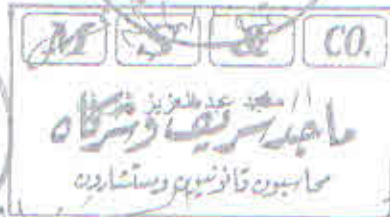 M S & CO.
ا/ محمد عبدالعزيز شركة
ماجد شريف وشركاه
محاسبون قانونيون ومستشارون